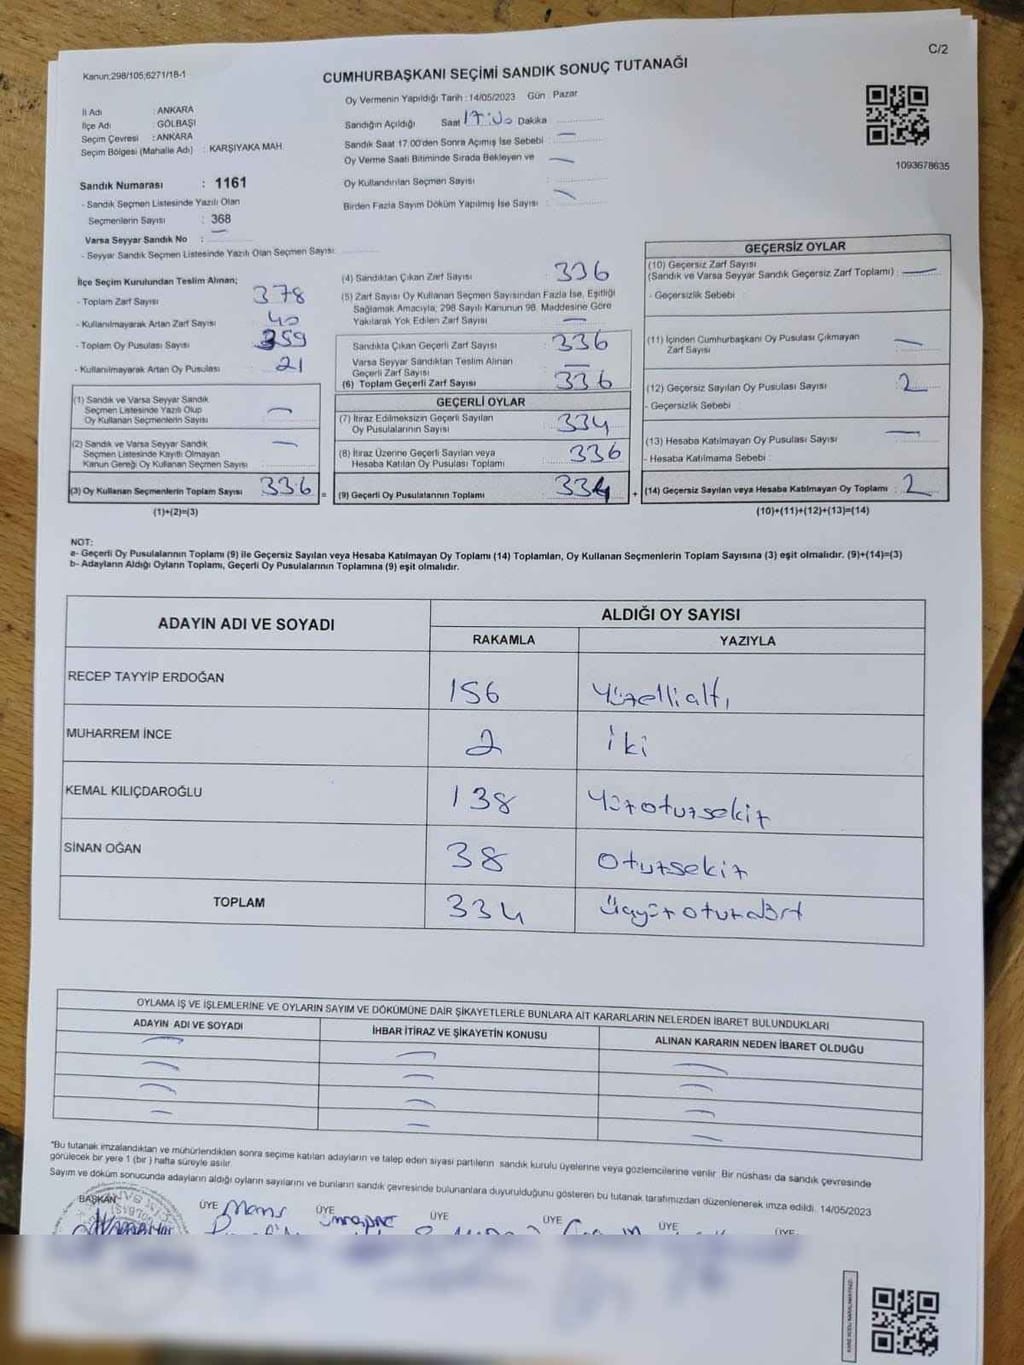 C/2
Kanun;298/105;6271/18-1
CUMHURBAŞKANI SEÇİMİ SANDIK SONUÇ TUTANAĞI
İl Adı : ANKARA
İlçe Adı : GÖLBAŞI
Seçim Çevresi : ANKARA
Seçim Bölgesi (Mahalle Adı) : KARŞIYAKA MAH.
Sandık Numarası : 1161
- Sandık Seçmen Listesinde Yazılı Olan
Seçmenlerin Sayısı : 368
Varsa Seyyar Sandık No :
- Seyyar Sandık Seçmen Listesinde Yazılı Olan Seçmen Sayısı:
Oy Vermenin Yapıldığı Tarih : 14/05/2023 Gün : Pazar
Sandığın Açıldığı Saat 17:00 Dakika
Sandık Saat 17.00'den Sonra Açılmış İse Sebebi : —
Oy Verme Saati Bitiminde Sırada Bekleyen ve —
Oy Kullandırılan Seçmen Sayısı :
Birden Fazla Sayım Döküm Yapılmış İse Sayısı : —
1093678635
İlçe Seçim Kurulundan Teslim Alınan;
- Toplam Zarf Sayısı 378
- Kullanılmayarak Artan Zarf Sayısı 40
- Toplam Oy Pusulası Sayısı 359
- Kullanılmayarak Artan Oy Pusulası 21
(1) Sandık ve Varsa Seyyar Sandık
Seçmen Listesinde Yazılı Olup
Oy Kullanan Seçmenlerin Sayısı —
(2) Sandık ve Varsa Seyyar Sandık
Seçmen Listesinde Kayıtlı Olmayan
Kanun Gereği Oy Kullanan Seçmen Sayısı —
(3) Oy Kullanan Seçmenlerin Toplam Sayısı 336 =
(1)+(2)=(3)
(4) Sandıktan Çıkan Zarf Sayısı 336
(5) Zarf Sayısı Oy Kullanan Seçmen Sayısından Fazla İse, Eşitliği
Sağlamak Amacıyla, 298 Sayılı Kanunun 98. Maddesine Göre
Yakılarak Yok Edilen Zarf Sayısı —
Sandıkta Çıkan Geçerli Zarf Sayısı 336
Varsa Seyyar Sandıktan Teslim Alınan
Geçerli Zarf Sayısı —
(6) Toplam Geçerli Zarf Sayısı 336
GEÇERLİ OYLAR
(7) İtiraz Edilmeksizin Geçerli Sayılan
Oy Pusulalarının Sayısı 334
(8) İtiraz Üzerine Geçerli Sayılan veya
Hesaba Katılan Oy Pusulası Toplamı 336
(9) Geçerli Oy Pusulalarının Toplamı 334 +
GEÇERSİZ OYLAR
(10) Geçersiz Zarf Sayısı
(Sandık ve Varsa Seyyar Sandık Geçersiz Zarf Toplamı) : —
- Geçersizlik Sebebi :
(11) İçinden Cumhurbaşkanı Oy Pusulası Çıkmayan
Zarf Sayısı —
(12) Geçersiz Sayılan Oy Pusulası Sayısı : 2
- Geçersizlik Sebebi :
(13) Hesaba Katılmayan Oy Pusulası Sayısı : —
- Hesaba Katılmama Sebebi :
(14) Geçersiz Sayılan veya Hesaba Katılmayan Oy Toplamı : 2
(10)+(11)+(12)+(13)=(14)
NOT:
a- Geçerli Oy Pusulalarının Toplamı (9) ile Geçersiz Sayılan veya Hesaba Katılmayan Oy Toplamı (14) Toplamları, Oy Kullanan Seçmenlerin Toplam Sayısına (3) eşit olmalıdır. (9)+(14)=(3)
b- Adayların Aldığı Oyların Toplamı, Geçerli Oy Pusulalarının Toplamına (9) eşit olmalıdır.
ADAYIN ADI VE SOYADI
ALDIĞI OY SAYISI
RAKAMLA YAZIYLA
RECEP TAYYİP ERDOĞAN 156 Yüzellialtı
MUHARREM İNCE 2 İki
KEMAL KILIÇDAROĞLU 138 Yüzotuzsekiz
SİNAN OĞAN 38 Otuzsekiz
TOPLAM 334 Üçyüzotuzdört
OYLAMA İŞ VE İŞLEMLERİNE VE OYLARIN SAYIM VE DÖKÜMÜNE DAİR ŞİKAYETLERLE BUNLARA AİT KARARLARIN NELERDEN İBARET BULUNDUKLARI
ADAYIN ADI VE SOYADI İHBAR İTİRAZ VE ŞİKAYETİN KONUSU ALINAN KARARIN NEDEN İBARET OLDUĞU
*Bu tutanak imzalandıktan ve mühürlendikten sonra seçime katılan adayların ve talep eden siyasi partilerin sandık kurulu üyelerine veya gözlemcilerine verilir. Bir nüshası da sandık çevresinde
görülecek bir yere 1 (bir) hafta süreyle asılır.
Sayım ve döküm sonucunda adayların aldığı oyların sayılarını ve bunların sandık çevresinde bulunanlara duyurulduğunu gösteren bu tutanak tarafımızdan düzenlenerek imza edildi. 14/05/2023
BAŞKAN ÜYE ÜYE ÜYE ÜYE ÜYE ÜYE